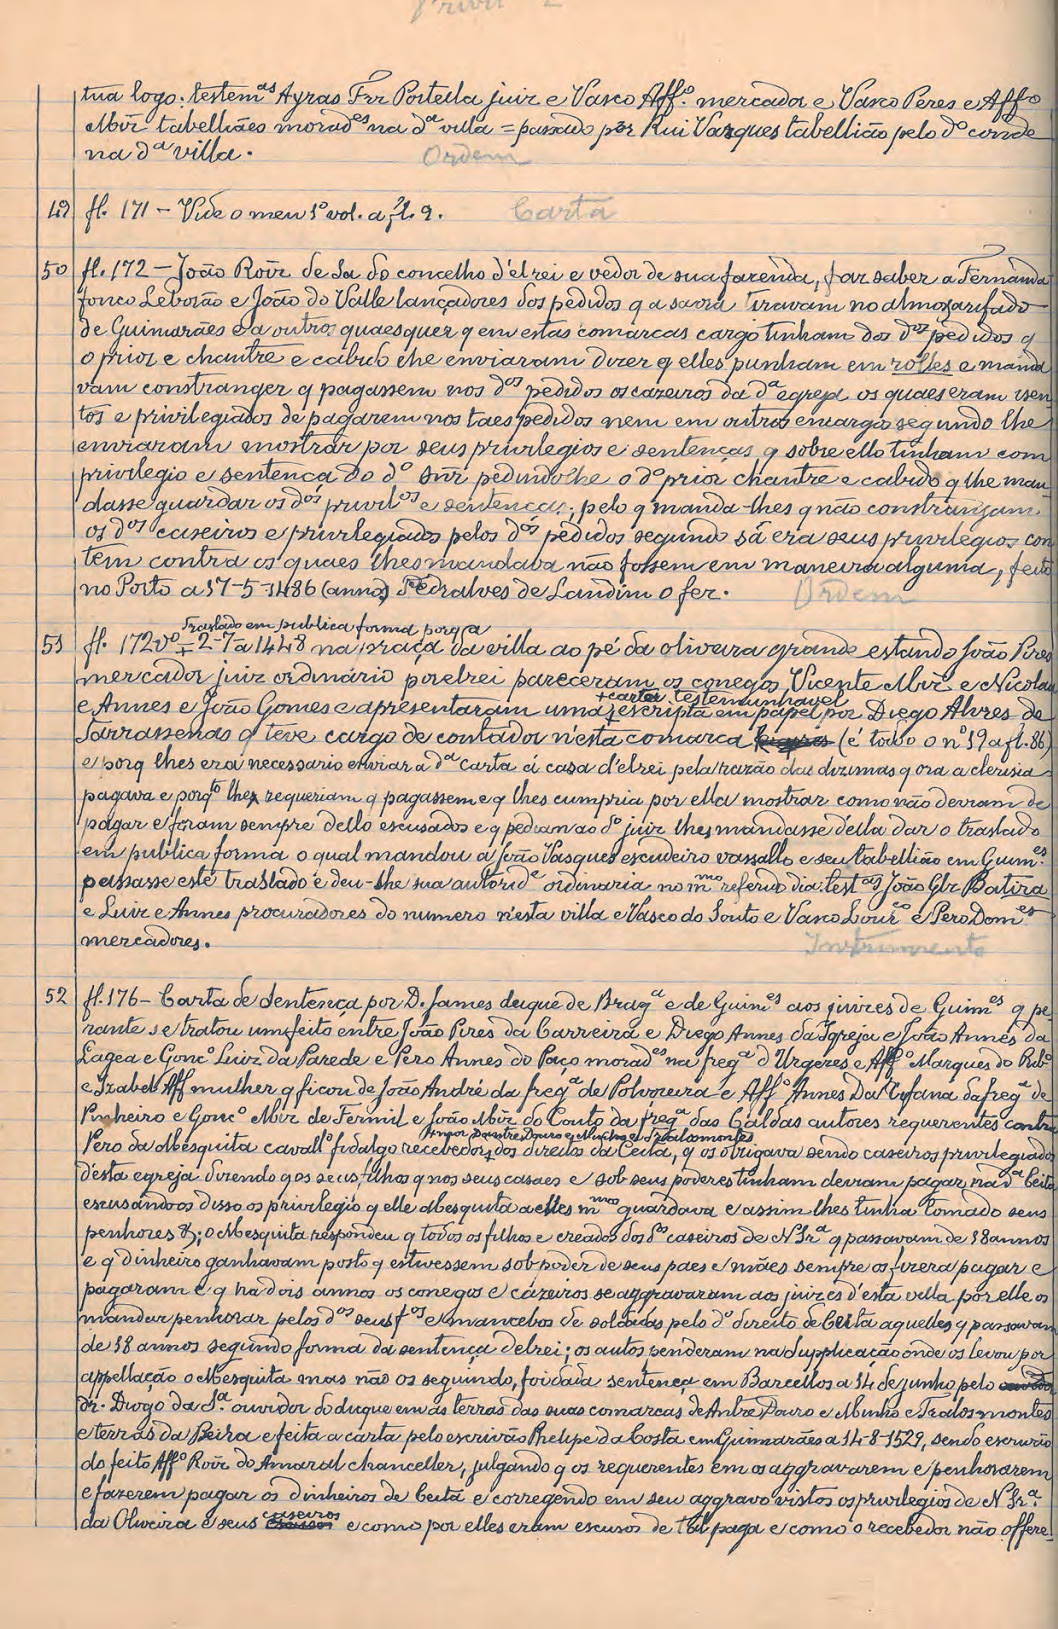 Privil
tua logo: testem.as Ayras Frz Portella juiz e Vasco Aff.o mercador e Vasco Peres e Aff.o
Miz tabelliães morad.es na d.a villa = passado por Rui Vasques tabellião pelo d.o conde
na d.a villa.
Ordem
49 fl. 171 – Vide o meu 1.o vol. a fl. 9.
Carta
50 fl. 172 – João Roiz de Sa do concelho d'elrei e vedor de sua fazenda, faz saber a Fernand'a
fonco Leborão e João do Valle lançadores dos pedidos q a sazã tiravam no almoxarifado
de Guimarães e a outros quaesquer q em estas comarcas cargo tinham dos d.os pedidos q
o prior e chantre e cabido lhe enviaram dizer q elles punham em rolles e manda
vam constranger q pagassem nos d.os pedidos os cazeiros da d.a egreja os quaes eram isen
tos e privilegiados de pagarem nos taes pedidos nem em outros encargos segundo lhe
enviaram mostrar por seus privilegios e sentenças q sobre ello tinham com
privilegio e sentença do d.o snr pedindolhe o d.o prior chantre e cabido q lhe man
dasse guardar os d.os privil.os e sentenças, pelo q manda-lhes q não constranjam
os d.os caseiros e privilegiados pelos d.os pedidos segundo sã era seus privilegios con
tem contra os quaes lhes mandava não fossem em maneira alguma, feito
no Porto a 17-5-1486 (anno) Pedralves de Landim o fez.
Ordem
Traslado em publica forma porq a
51 fl. 172v.o – 2-7-a 1448 na praça da villa ao pé da oliveira grande estando João Pires
mercador juiz ordinário por elrei pareceram os conegos Vicente Miz e Nicolau
+ carta testemunhavel
e Annes e João Gomes e apresentaram uma + escripta em papel por Diego Alvres de
Tarrassenas q teve cargo de contador n'esta comarca (é todo o nº 19 a fl. 86)
e porq lhes era necessario enviar a d.a carta á casa d'elrei pela razão das dizimas q ora a clerisia
pagava e porq.to lhes requeriam q pagassem e q lhes cumpria por ella mostrar como não devram de
pagar e foram sempre dello escusados e q pediam ao d.o juiz lhes mandasse d'ella dar o traslado
em publica forma o qual mandou a João Vasques escudeiro vassallo e seu tabellião em Guim.es
passasse este traslado e deu-lhe sua autorid.e ordinaria no m.mo referido dia: test.as João Glz Batira
e Luiz e Annes procuradores do numero n'esta villa e Vasco do Souto e Vasco Lour.ço e Pero Dom.es
mercadores.
Instrumento
52 fl. 176 – Carta de sentença por D. James duque de Brag.a e de Guim.es aos juizes de Guim.es q pe
rante se tratou um feito entre João Pires da Carreira e Diego Annes da Igreja e João Annes da
Lagea e Gonc.o Luiz da Parede e Pero Annes do Paço morad.es na freg.a d'Urgeres e Aff.o Marques do Rib.o
e Izabel Aff mulher q ficou de João André da freg.a de Polvoreira e Aff.o Annes Da Tifana da freg.a de
Pinheiro e Gonc.o Miz de Fermil e João Miz do Couto da freg.a das Caldas autores requerentes contra
t-mor Dantre Douro e Minho e Tralosmontes
Pero da Mesquita cavall.o fidalgo recebedor + dos direitos da Ceita, q os obrigava sendo caseiros privilegiados
d'esta egreja dizendo q os seus filhos q nos seus casaes e sob seus poderes tinham devram pagar na d.a Ceita
escusandoos disso os privilegio q elle Mesquita a elles m.mo guardava e assim lhes tinha tomado seus
penhores &; o Mesquita respondeu q todos os filhos e creados dos d.os caseiros de N Sr.a q passavam de 18 annos
e q dinheiro ganhavam posto q estivessem sob poder de seus paes e mães sempre os fizera pagar e
pagaram e q ha dois annos os conegos e cazeiros se aggravaram aos juizes d'esta villa por elle os
mandar penhorar pelos d.os seus f.os e mancebos de soldadas pelo d.o direito de Ceita aquelles q passavam
de 18 annos segundo forma da sentença delrei; os autos penderam na supplicação onde os levou por
appellação o Mesquita mas não os seguindo, foi dada sentença em Barcellos a 14 de junho pelo
dr. Diogo da S.a ouvidor do duque em as terras das suas comarcas de Antre Douro e Minho e Tralos-montes
e terras da Beira e feita a carta pelo escrivão Phelipe da Costa em Guimarães a 14-8-1529, sendo escrivão
do feito Aff.o Roiz do Amaral chanceller, julgando q os requerentes em os aggravarem e penhorarem
e fazerem pagar os dinheiros de Ceita e corregendo em seu aggravo vistos os privilegios de N Sr.a
da Oliveira e seus caseiros e como por elles eram escusos de tal paga e como o recebedor não offere-